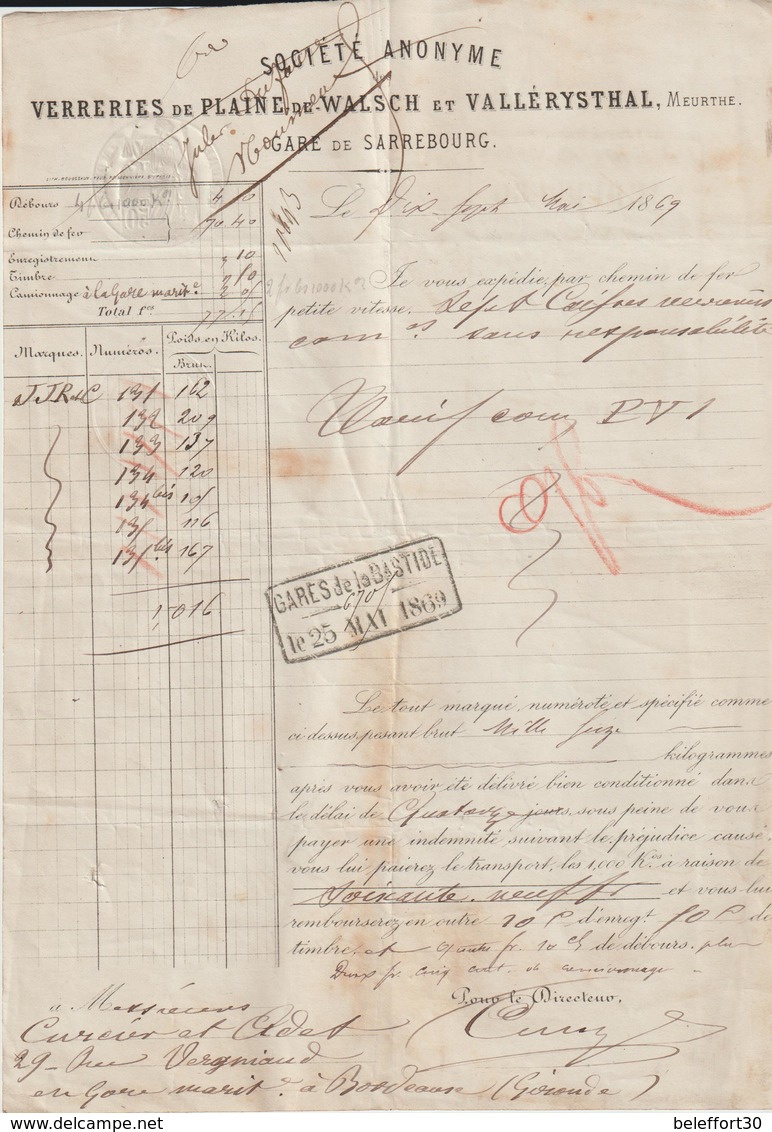 SOCIÉTÉ ANONYME
VERRERIES DE PLAINE-DE-WALSCH ET VALLÉRYSTHAL, MEURTHE.
GARE DE SARREBOURG.
Débours 4
Chemin de fer 70.40
Enregistrement 10
Timbre
Camionnage à la Gare marit.e
Total f.cs
Marques. Numéros. Poids en Kilos.
Brut.
JJR et C 131 162
132 209
133 137
134 120
134 bis 105
135 116
135 bis 167
1,016
Le Dix Sept Mai 1869
Je vous expédie, par chemin de fer
petite vitesse, Sept Caisses verreries
com.es sans responsabilité
Tarif com PV1
GARES de la BASTIDE
le 25 MAI 1869
Le tout marqué, numéroté et spécifié comme
ci dessus pesant brut Mille Seize
kilogrammes
après vous avoir été délivré bien conditionné dans
le délai de Quatorze jours, sous peine de vous
payer une indemnité suivant le préjudice causé,
vous lui paierez le transport, les 1,000 K.es à raison de
Soixante neuf fr et vous lui
rembourserez en outre 10 c d'enreg.t 50 c de
timbre, et quatre fr. 10 cs de débours, plus
Deux fr cinq cent. de camionnage
Pour le Directeur,
à Messieurs
Cursier et Adet
29 Rue Vergniaud
en Gare marit.e à Bordeaux (Gironde)
beleffort30